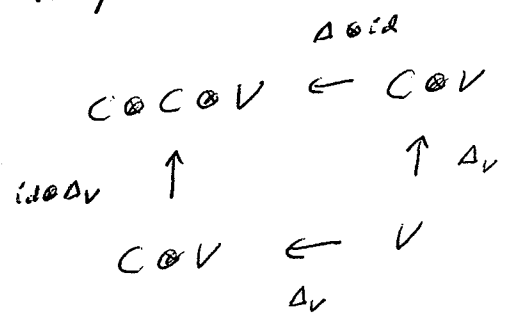 Δ⊗id
C⊗C⊗V ← C⊗V
id⊗Δ_V ↑ ↑ Δ_V
C⊗V ← V
Δ_V